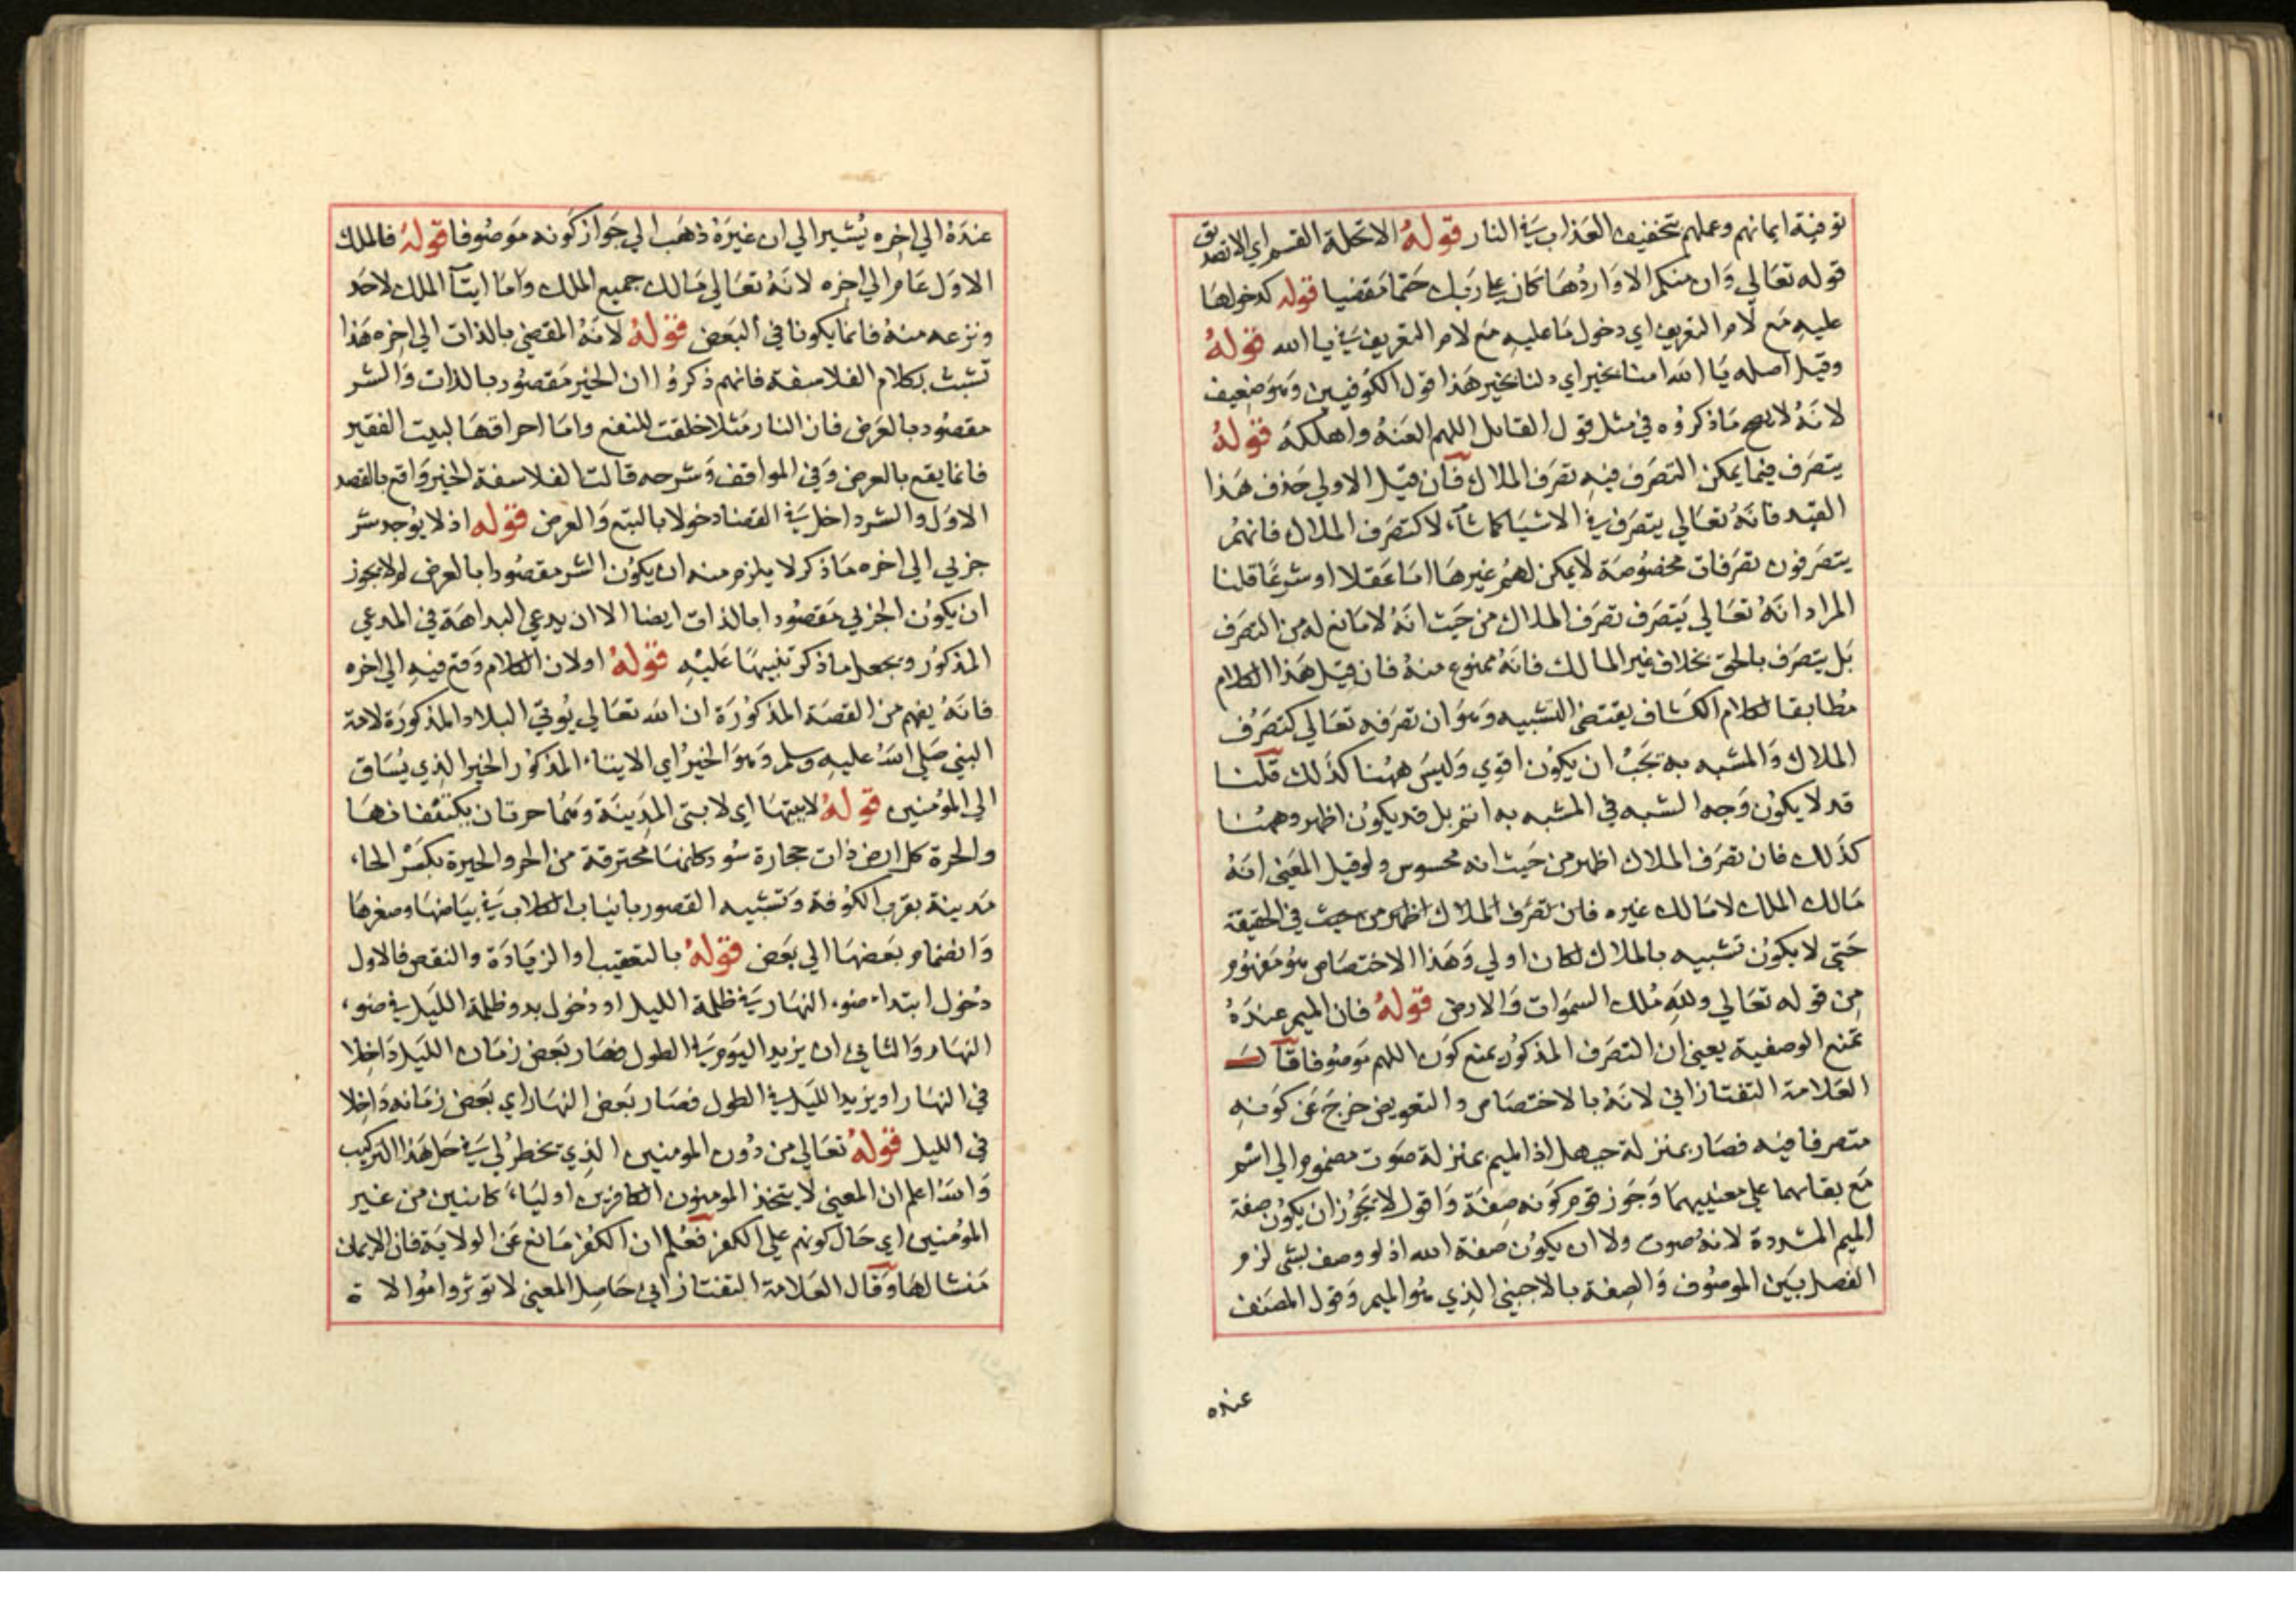 توفية ايمانهم وعملهم بتخفيف العذاب في النار قوله الا تحلة القسم اي الا تصديق
قوله تعالي وان منكم الا واردها كان علي ربك حتما مقضيا قوله كدخولها
عليه مع لام التعريف اي دخول ما عليه مع لام التعريف في يا الله قوله
وقيل اصله يا الله امنا بخير اي دلنا بخير هذا قول الكوفيين وهو ضعيف
لانه لا يصح ما ذكروه في مثل قول القائل اللهم العنه واهلكه قوله
يتصرف فيما يمكن التصرف فيه تصرف الملاك فان قيل الاولي حذف هذا
القيد فانه تعالي يتصرف في الاشيا كما شآء لا كتصرف الملاك فانهم
يتصرفون تصرفات مخصوصة لا يمكن لهم غيرها اما عقلا او شرعا قلنا
المراد انه تعالي يتصرف تصرف الملاك من حيث انه لا مانع له من التصرف
بل يتصرف بالحق بخلاف غير المالك فانه ممنوع منه فان قيل هذا الكلام
مطابقا لكلام الكشاف يقتضي التشبيه وهو ان تصرفه تعالي كتصرف
الملاك والمشبه به يجب ان يكون اقوي وليس ههنا كذلك قلنا
قد لا يكون وجه الشبه في المشبه به اتم بل قد يكون اظهر وههنا
كذلك فان تصرف الملاك اظهر من حيث انه محسوس ولو قيل المعني انه
مالك الملك لا مالك غيره فان تصرف الملاك اظهر من حيث في الحقيقة
حتي لا يكون تشبيه بالملاك لكان اولي وهذا الاختصاص هو مفهوم
من قوله تعالي ولله ملك السموات والارض قوله فان الميم عنده
تمنع الوصفية يعني ان التصرف المذكور يمنع كون اللهم موصوفا قال
العلامة التفتازاني لانه بالاختصاص والتعويض خرج عن كونه
متصرفا فيه فصار بمنزلة حيهل اذ الميم بمنزلة صوت مضموم الي اسم
مع بقائهما علي معنييهما وجوز قوم كونه صفة واقول لا يجوز ان يكون صفة
الميم المشددة لانه صوت ولا ان يكون صفة الله اذ لو وصف بشي لزم
الفصل بين الموصوف والصفة بالاجنبي الذي هو الميم وقول المصنف
عنده
عنده الي اخره يشير الي ان غيره ذهب الي جواز كونه موصوفا قوله فالملك
الاول عام الي اخره لانه تعالي مالك جميع الملك واما ايتآ الملك لاحد
ونزعه منه فانما يكونا في البعض قوله لانه المقضي بالذات الي اخره هذا
تشبث بكلام الفلاسفة فانهم ذكروا ان الخير مقصور بالذات والشر
مقصود بالعرض فان النار مثلا خلقت للنفع واما احراقها لبيت الفقير
فانما يقع بالعرض وفي المواقف وشرحه قالت الفلاسفة الخير واقع بالقصد
الاول والشر داخل في القضا دخولا بالتبع والعرض قوله اذ لا يوجد شر
جزيي الي اخره ما ذكر لا يلزم منه ان يكون الشر مقصودا بالعرض لم لا يجوز
ان يكون الجزيي مقصودا بالذات ايضا الا ان يدعي البداهة في المدعي
المذكور ويجعل ما ذكر تنبيها عليه قوله او لان الكلام وقع فيه الي اخره
فانه يفهم من القصة المذكورة ان الله تعالي يوتي البلاد المذكورة لامة
النبي صلي الله عليه وسلم وهو الخير اي الايتاء المذكور الخير الذي يساق
الي المؤمنين قوله لابتيها اي لابتي المدينة وهما حرتان يكتنفانها
والحرة كل ارض ذات حجارة سود كانها محترقة من الحر والحيرة بكسر الحاء
مدينة بقرب الكوفة وتشبيه القصور بانياب الكلاب في بياضها وصغرها
وانضمام بعضها الي بعض قوله بالتعقيب او الزيادة والنقص فالاول
دخول ابتداء ضوء النهار في ظلمة الليل او دخول بدو ظلمة الليل في ضوء
النهار والثاني ان يزيد اليوم في الطول فصار بعض زمان الليل داخلا
في النهار او يزيد الليل في الطول فصار بعض النهار اي بعض زمانه داخلا
في الليل قوله تعالي من دون المومنين الذي تخطر لي في حل هذا التركيب
والله اعلم ان المعني لا يتخذ المومنون الكافرين اولياء كائنين من غير
المؤمنين اي حال كونهم علي الكفر فعلم ان الكفر مانع عن الولاية فان الايمان
منشا لها وقال العلامة التفتازاني حاصل المعني لا توثروا موالاة